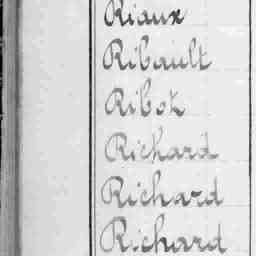 Riaux
Ribault
Ribot
Richard
Richard
Richard